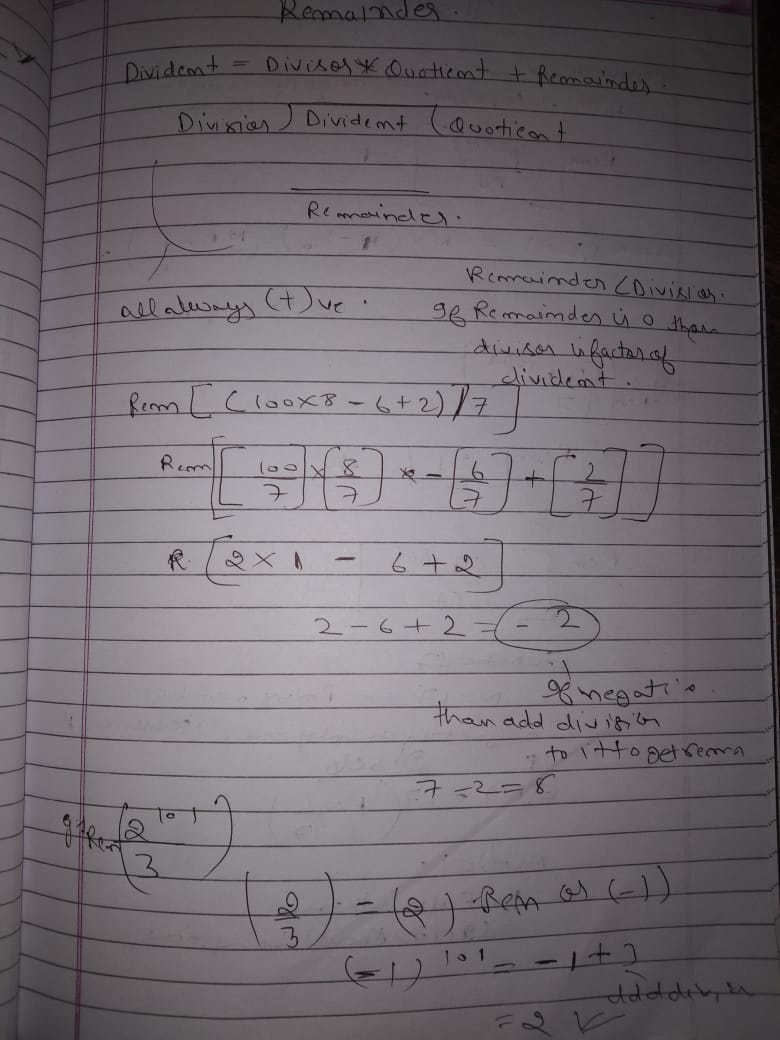 Remainder.
Divident = Divisor * Quotient + Remainder.
Division ) Divident ( Quotient
Remainder.
Remainder < Division.
all always (+)ve .
If Remainder is 0 than
divisor is factor of
divident .
Rem [ (100×8 - 6+2) / 7 ]
Rem [ [100/7] × [8/7] - [6/7] + [2/7] ]
R. [ 2 × 1 - 6 + 2 ]
2 - 6 + 2 = - 2
If negative
than add division
to it to get
7 - 2 = 
Rem ( 2^101 / 3 )
( 2/3 ) = (2) Rem or (-1)
(-1)^101 = -1 +
= 2